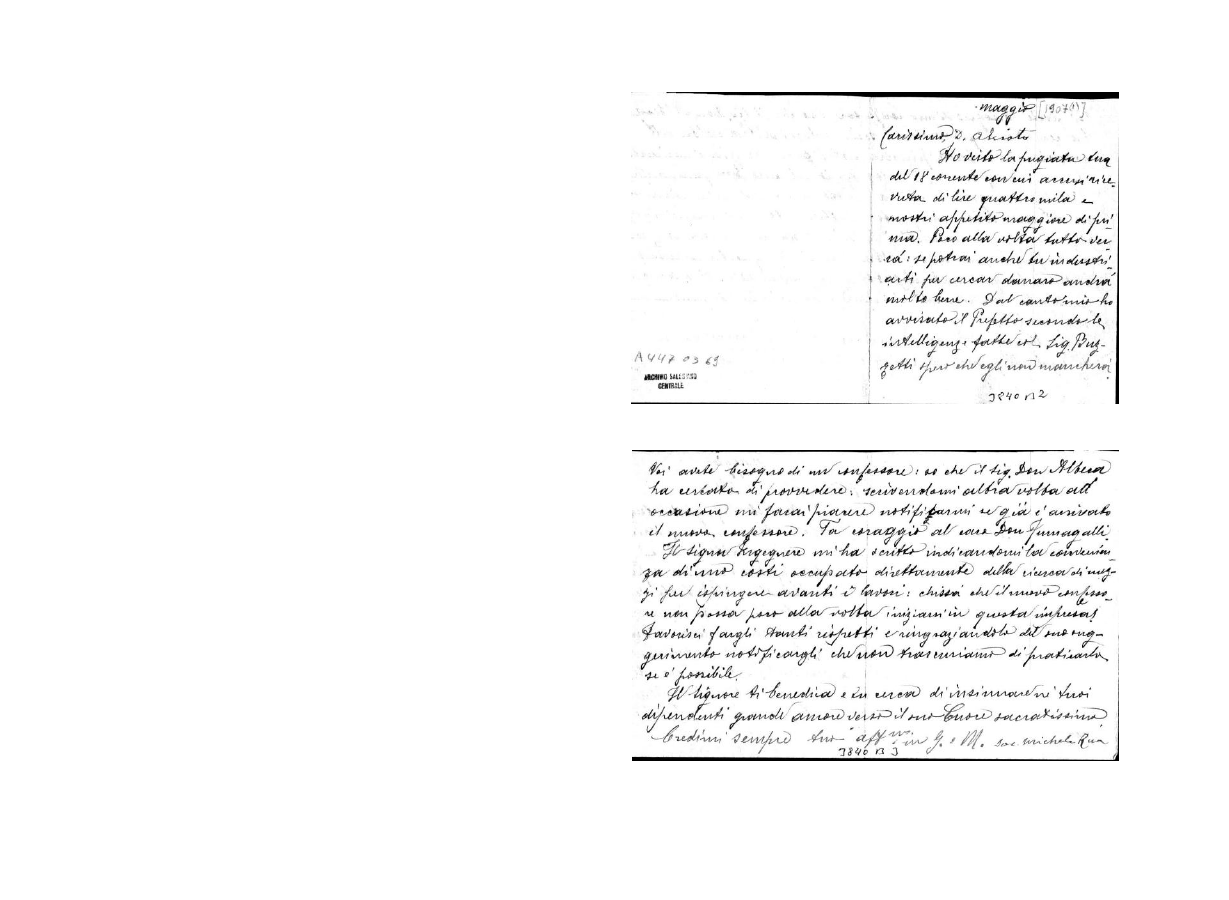 maggio [1907(?)]
Carissimo D.
Ho visto la pregiata tua
del 18 corrente con cui accusi rice-
vuta di lire quattro mila e
mostri appetito maggiore di pri-
ma. Poco alla volta tutto ver-
rá: se potrai anche tu industri-
arti per cercar danaro andrá
molto bene. Dal canto mio ho
avvisato il Prefetto secondo le
intelligenze fatte col Sig. Buz-
zetti spero che egli non mancherá.
A 447 03 69
ARCHIVIO SALESIANO
CENTRALE
3840 B 2
Voi avete bisogno di un confessore: so che il sig. Don Albera
ha cercato di provvedere: scrivendomi altra volta all'
occasione mi farai piacere notificarmi se giá é arrivato
il nuovo confessore. Fa coraggio al caro Don Fumagalli.
Il Signor Ingegnere mi ha scritto indicandomi la convenien-
za di uno costi occupato direttamente della ricerca di mez-
zi per ispingere avanti i lavori: chissá che il nuovo confesso-
re non possa poco alla volta iniziarsi in questa impresa!
Favorisci fargli tanti rispetti e ringraziandolo del suo sug-
gerimento notificargli che non trascuriamo di praticarlo
se é possibile.
Il Signore ti benedica e tu cerca di insinuare ne' tuoi
dipendenti grande amore verso il suo Cuore sacratissimo.
Credimi sempre tuo aff.mo in G. e M. Sac. Michele Rua
3840 B 3